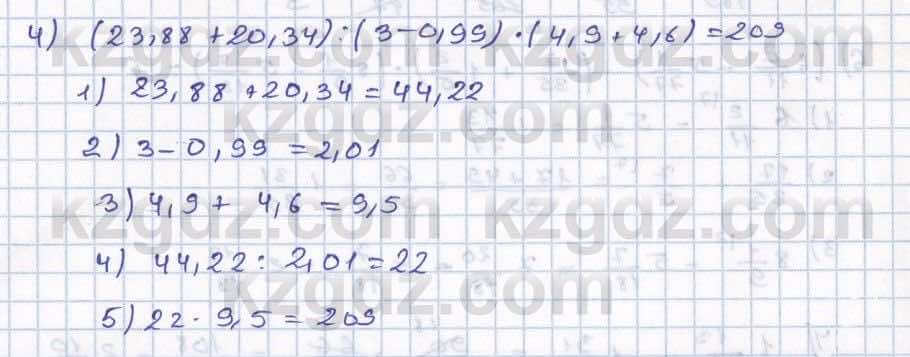 4) (23,88 + 20,34) : (3 - 0,99) · (4,9 + 4,6) = 209
1) 23,88 + 20,34 = 44,22
2) 3 - 0,99 = 2,01
3) 4,9 + 4,6 = 9,5
4) 44,22 : 2,01 = 22
5) 22 · 9,5 = 209
kzgdz.com